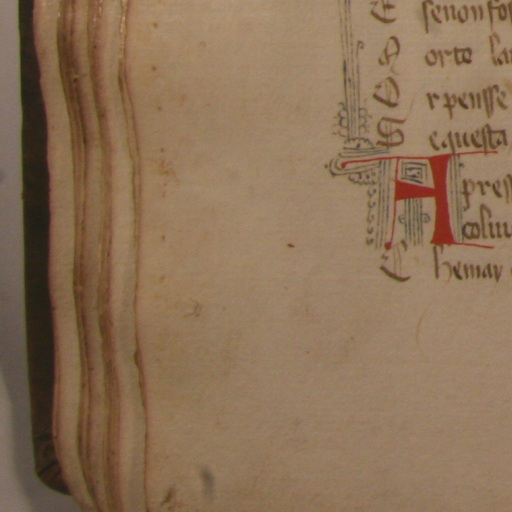 E senon fos
D orte la
O r pensse
N equesta
A pres
coluu
C hemay